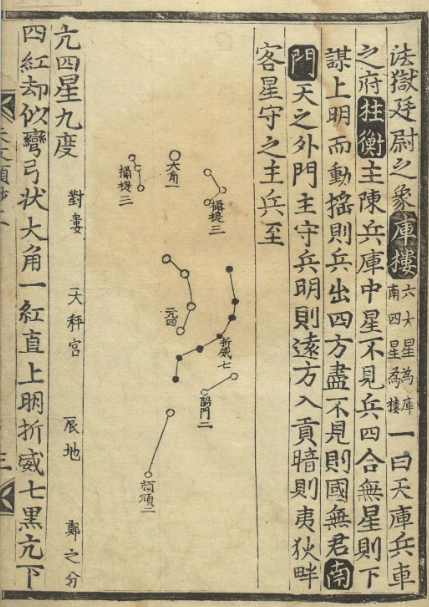 法獄廷尉之象庫樓六大星為庫南四星為樓一曰天庫兵車
之府柱衡主陳兵庫中星不見兵四合無星則下
謀上明而動搖則兵出四方盡不見則國無君南
門天之外門主守兵明則遠方入貢暗則夷狄畔
客星守之主兵至
攝提三
大角一
攝提三
亢四
折威七
陽門二
頏頑二
亢四星九度
對婁 天秤宮 辰地 鄭之分
四紅却似彎弓状大角一紅直上明折威七黑亢下